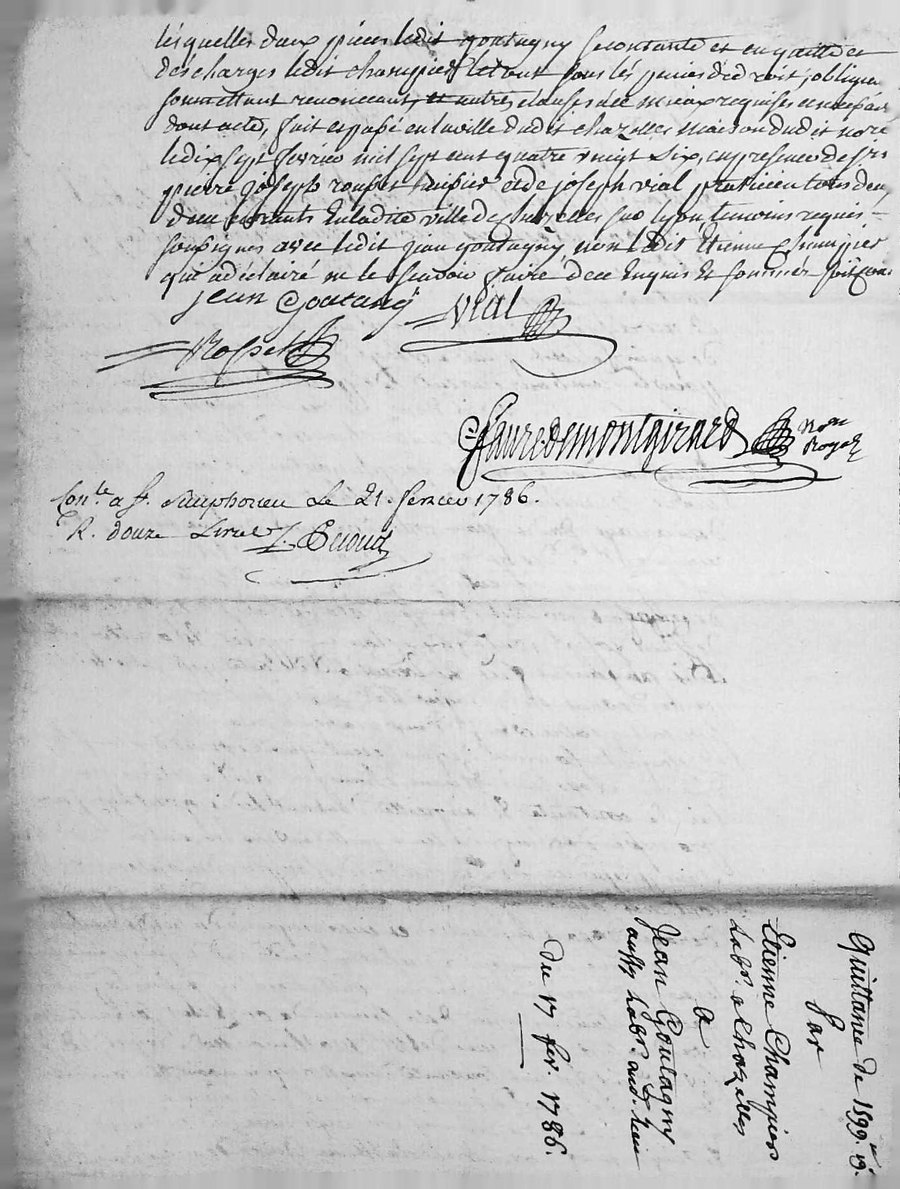 lesquelles deux pieces ledit goutagny se contante et en quitte et
descharges ledit champier et tout sous les peines de droit, oblige
soumettant renonceant, et autres clauses necc mieux requises
dont acte, fait et passé en la ville dudit chazelles maison dudit nore
le dix sept fevrier mil sept cent quatre vingt six, en presence de srs
pierre joseph rouset et de joseph vial praticien tous deux
demeurants en ladite ville de chazelles sur lyon temoins requis
soussignes avec ledit jean goutagny non ledit Etienne champier
qui a declaré ne le scavoir faire de ce enquis et sommés
jean Goutagny
Vial
Rospet
faure de montgirard
nore
Royal
Conlé a st. simphorien Le 21. fevrier 1786.
R. douze Livres
Quittance de 1599.
Par
Etienne Champier
Labr. a Chazelles
a
Jean Goutagny
aussy Labr. aud. lieu
Du 17 fev. 1786.